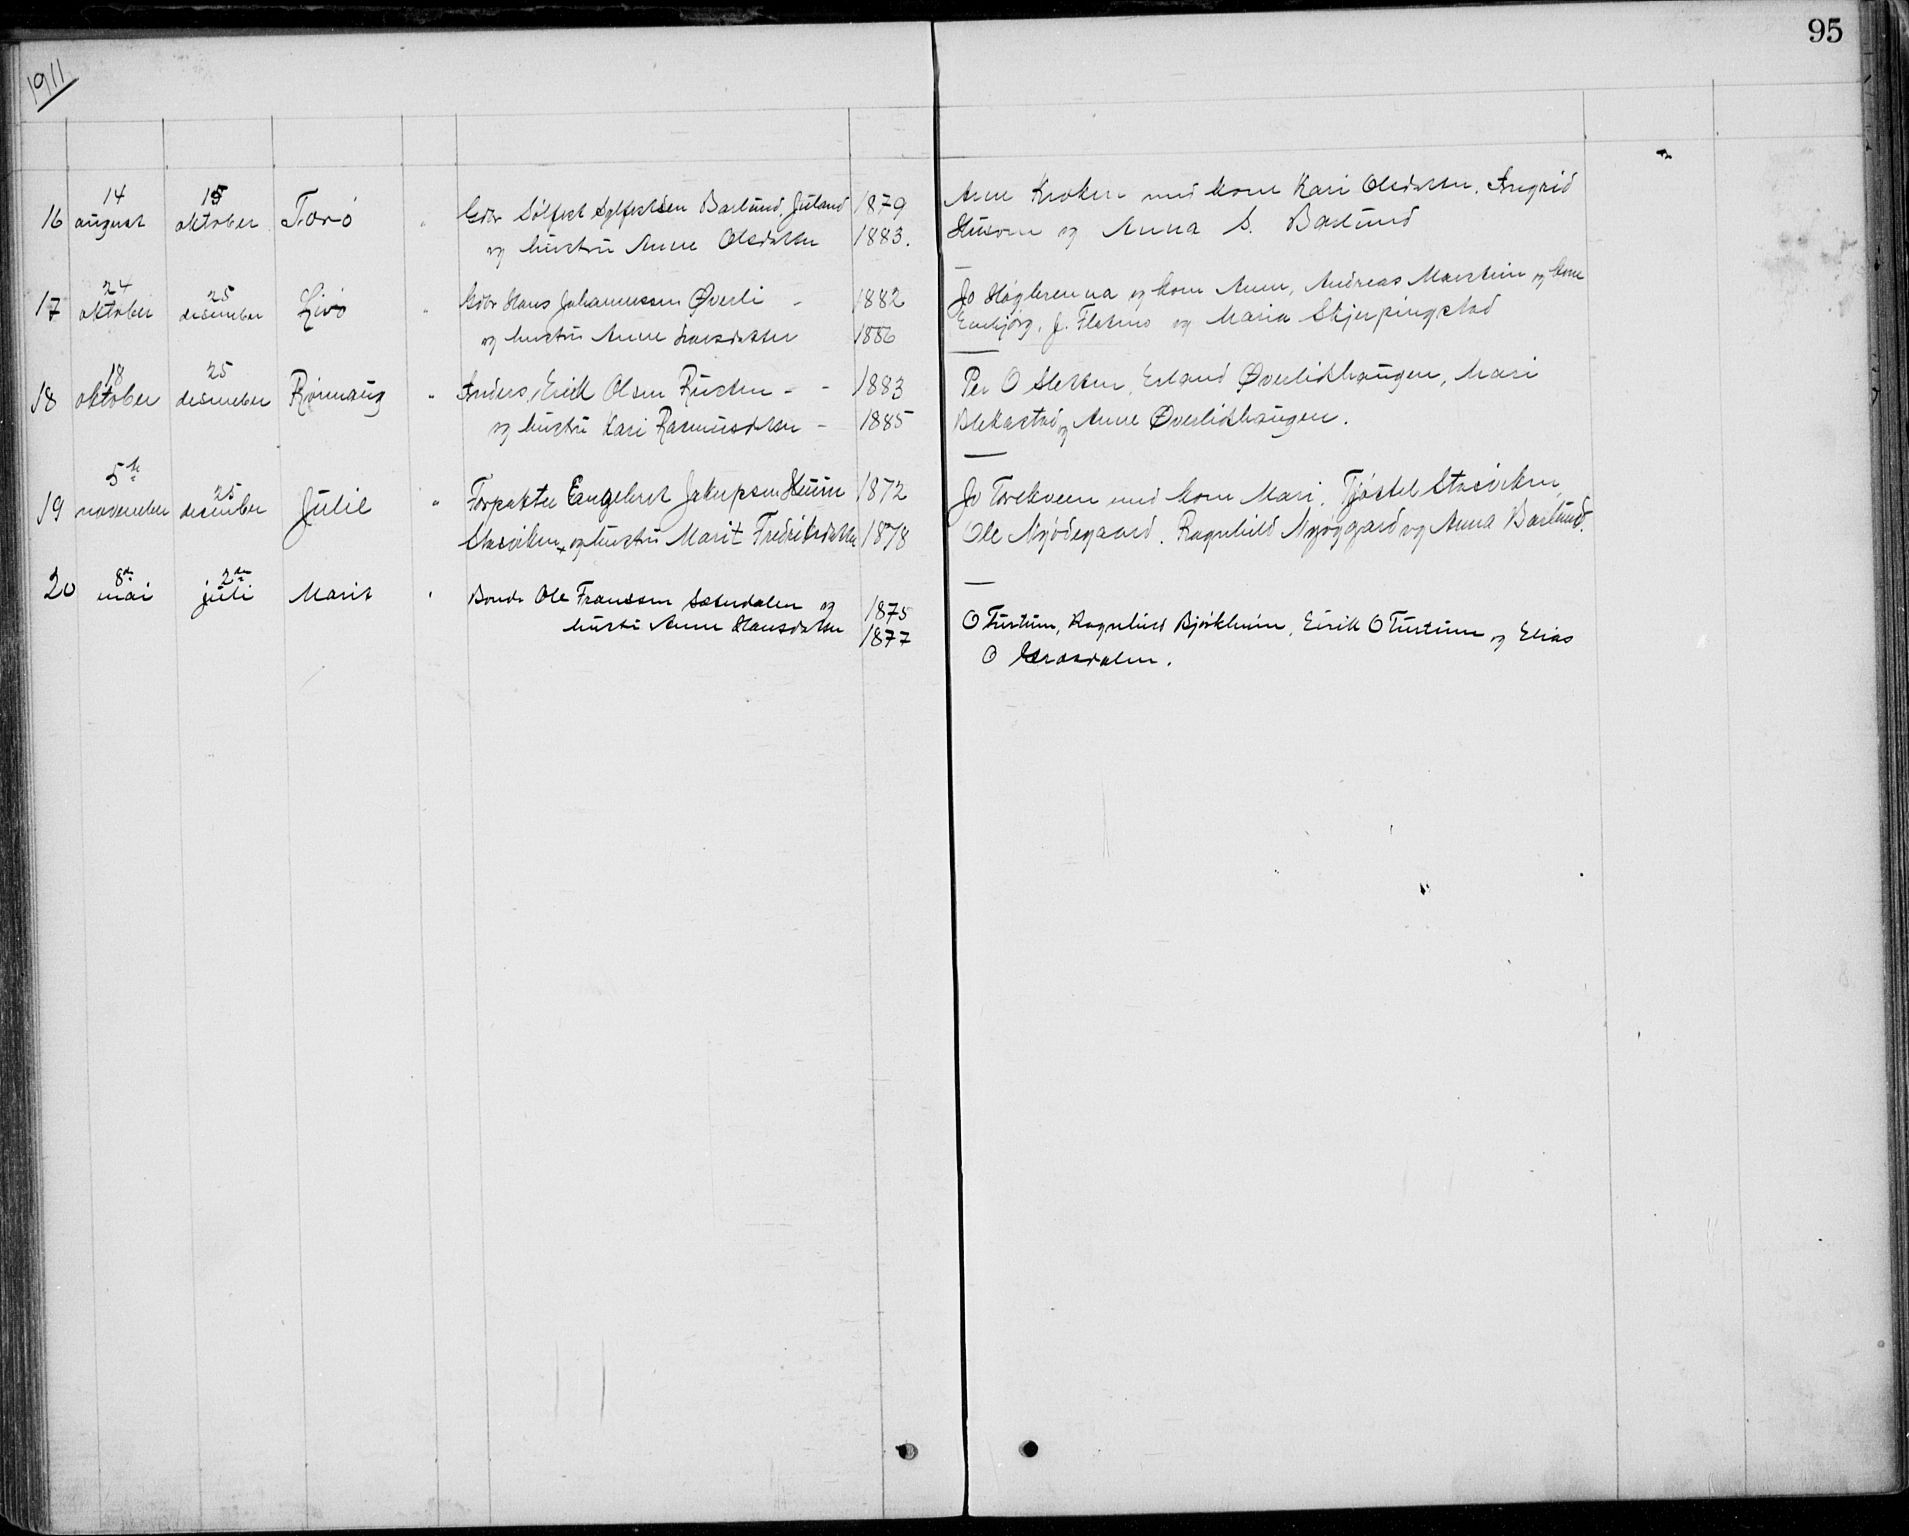 95
1911
16 14 august 15 oktober Toro " Gdbr Sølfest Sylfestsen Barlund, Juland 1879
og hustru Anne Olsdatter 1883.
Arne Kroken med kone Kari Olsdatter. Ingrid
Husom og Anna S. Barlund
17 24 oktober 25 desember Livø " Gdbr Hans Johannessen Øverli - 1882
og hustru Anne Larsdatter 1886
Jo Høgbrenna og kone Anne, Andreas Marstein og kone
Embjørg, J. Flatmo og Maria Skjerpingstad
18 18 oktober 25 desember Rønnaug " Anders, Erik Olsen Rusten - - 1883
og hustru Kari Rasmusdatter - 1885
Per O Sletten, Erland Øverlihaugen, Mari
Blekastad og Anne Øverlihaugen.
19 5te november 25 desember Julie " Forpakter Engebret Jakupsen Heim 1872
Stavviken og hustru Marit Fredriksdatter 1878
Jo Torekveen med kone Mari, Tjøstel Stavviken,
Ole Nyødegaard. Ragnhild Nyøygard og Anna Barlund.
20 8de mai 2den juli Marit " Bonde Ole Franssen Sæterdalen og 1875
hustru Anne Hansdatter 1877
O Turtum, Ragnhild Bjørkheim, Eirik O Turtum og Elias
O dalen.